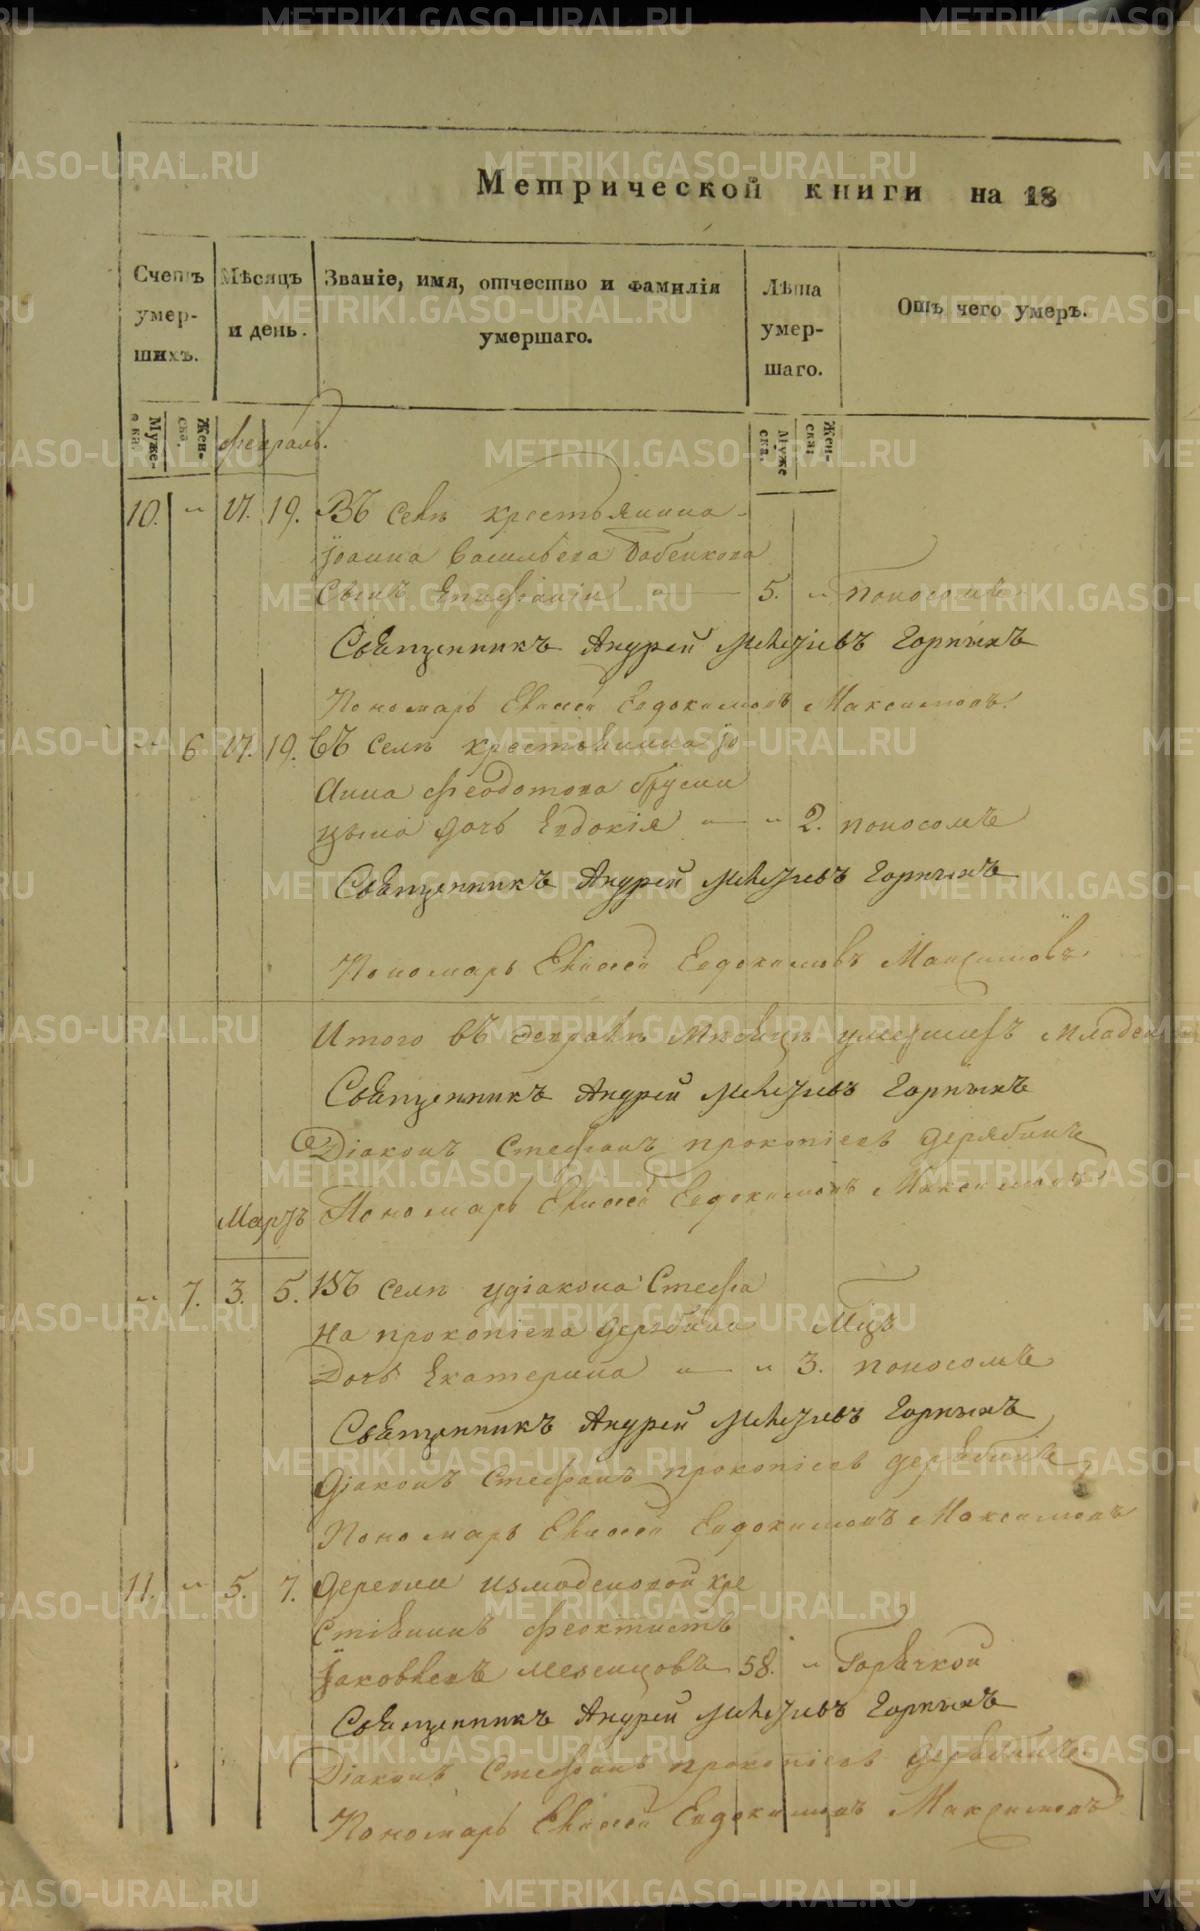 Метрической книги на 18
Счетъ умер- шихъ.
Мѣсяцъ и день.
Званіе, имя, отчество и фамилія умершаго.
Лѣта умер- шаго.
Отъ чего умеръ.
Муже- ска.
Жен- ска.
Муже ска.
Жен- ска.
Февраль.
10. " 17. 19. Въ селѣ крестьянина
Іоанна Васильева
Сынъ Епифаній " 5. " поносомъ
Священникъ Андрей Горныхъ
Пономарь Елисей Евдокимовъ Максимовъ.
" 6 17. 19. Въ селѣ крестьянина Іо
анна Феодотова Брусни
цына дочь Евдокія " " 2. поносомъ
Священникъ Андрей Горныхъ
Пономарь Елисей Евдокимовъ Максимовъ
Итого въ февралѣ мѣсяцѣ умершихъ младен
Священникъ Андрей Горныхъ
Діаконъ Стефанъ Прокопіевъ Дерябинъ
Пономарь Елисей Евдокимовъ Максимовъ
Мартъ
" 7. 3. 5. Въ селѣ у діакона Стефа
на Прокопіева Дерябина Мцъ
Дочь Екатерина " " 3. поносомъ
Священникъ Андрей Горныхъ
Діаконъ Стефанъ Прокопіевъ Дерябинъ
Пономарь Елисей Евдокимовъ Максимовъ
11. " 5. 7. Деревни Измоденовой кре
стьянинъ Феоктистъ
Іаковлевъ 58. " Горячкой
Священникъ Андрей Горныхъ
Діаконъ Стефанъ Прокопіевъ Дерябинъ
Пономарь Елисей Евдокимовъ Максимовъ
METRIKI.GASO-URAL.RU